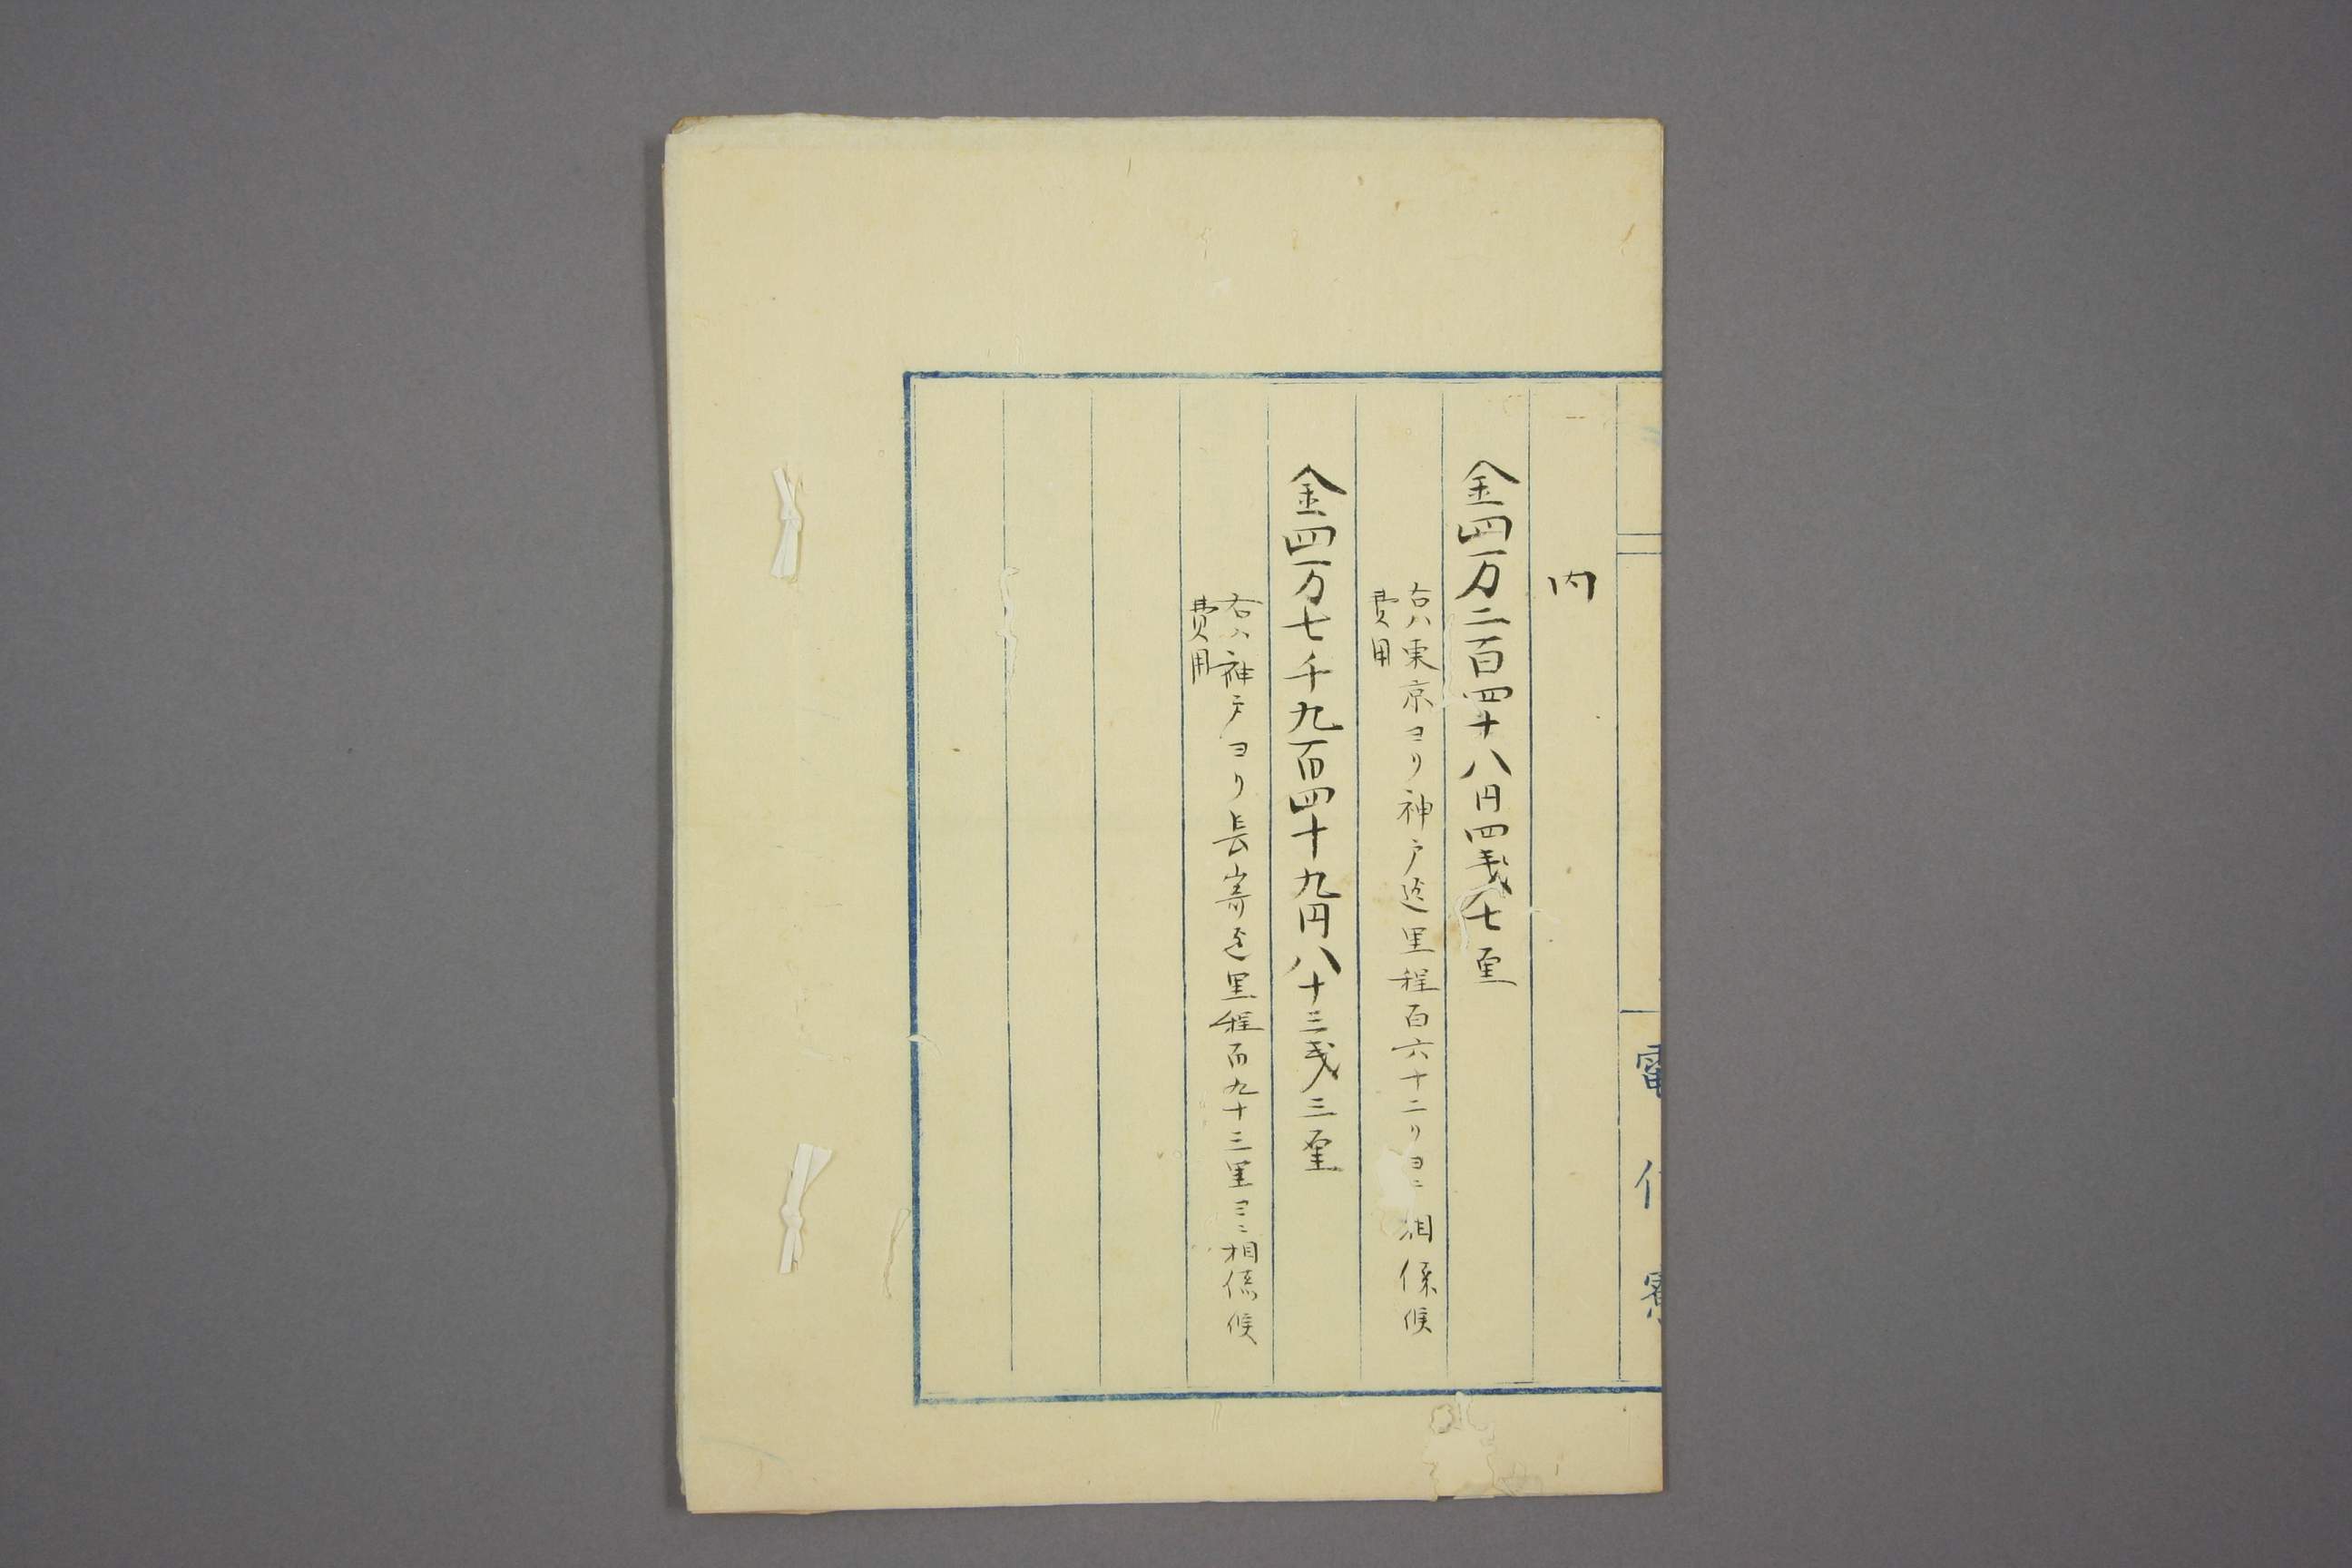 電信寮
内
金四万二百四十八円四銭七厘
右ハ東京ヨリ神戸迄里程百六十二リヨニ相係候
費用
金四万七千九百四十九円八十三銭三厘
右ハ神戸ヨリ長嵜迄里程百九十三里ヨニ相係候
費用